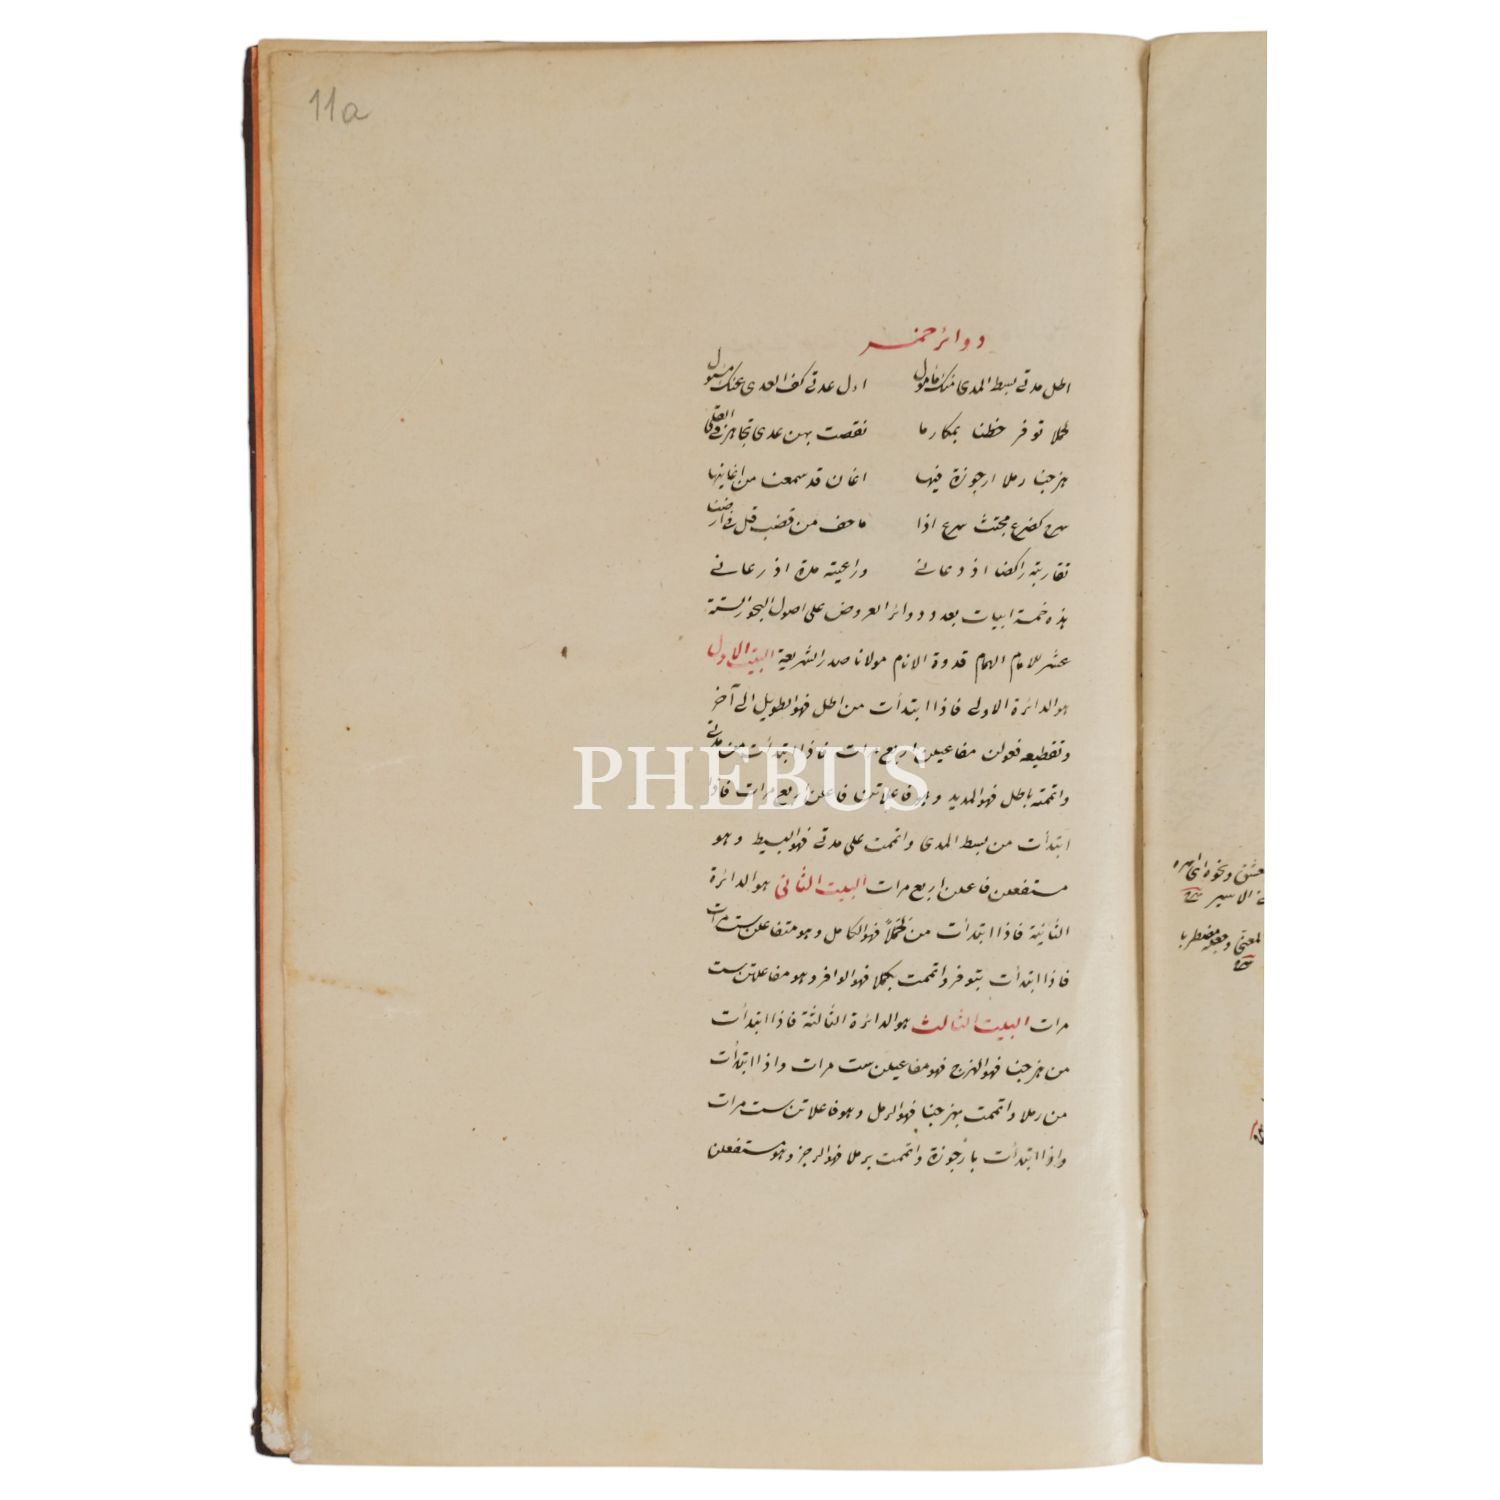 11a
دوائر خمسه
اطل مدتے بسط المدی منک مأمول اول عدتے کف العدی عنک مسؤل
کملا توفر حظنا بمکارما نقصت بهن عدی
هزجنا رملا ارجوزة فيها اغان قد سمعنا من اغانيها
سرح کضرع مجتث سرع اذا ما خف من قضب قبل
تقاربته راکضا اذ دعانے وراعيته مدة اذ رعانے
هذه خمسة ابيات بعدد دوائر العروض علی اصول البحور الستة
عشر للامام الهمام قدوة الانام مولانا صدر الشريعة البيت الاول
هو الدائرة الاولے فاذا ابتدأت من اطل فهو الطويل الی آخر
وتقطيعه فعولن مفاعيلن اربع مرات فاذا ابتدأت من مدتے
واتممته باطل فهو المديد وهو فاعلاتن فاعلن اربع مرات فاذا
ابتدأت من بسط المدی واتممت علی مدتے فهو البسيط وهو
مستفعلن فاعلن اربع مرات البيت الثانی هو الدائرة
الثانية فاذا ابتدأت من کملاً فهو الکامل وهو متفاعلن ست مرات
فاذا ابتدأت بتوفر واتممت بکملا فهو الوافر وهو مفاعلتن ست
مرات البيت الثالث هو الدائرة الثالثة فاذا ابتدأت
من هزجنا فهو الهزج فهو مفاعيلن ست مرات واذا ابتدأت
من رملا واتممت بهزجنا فهو الرمل وهو فاعلاتن ست مرات
واذا ابتدأت بأرجوزة واتممت برملا فهو الرجز وهو مستفعلن
PHEBUS